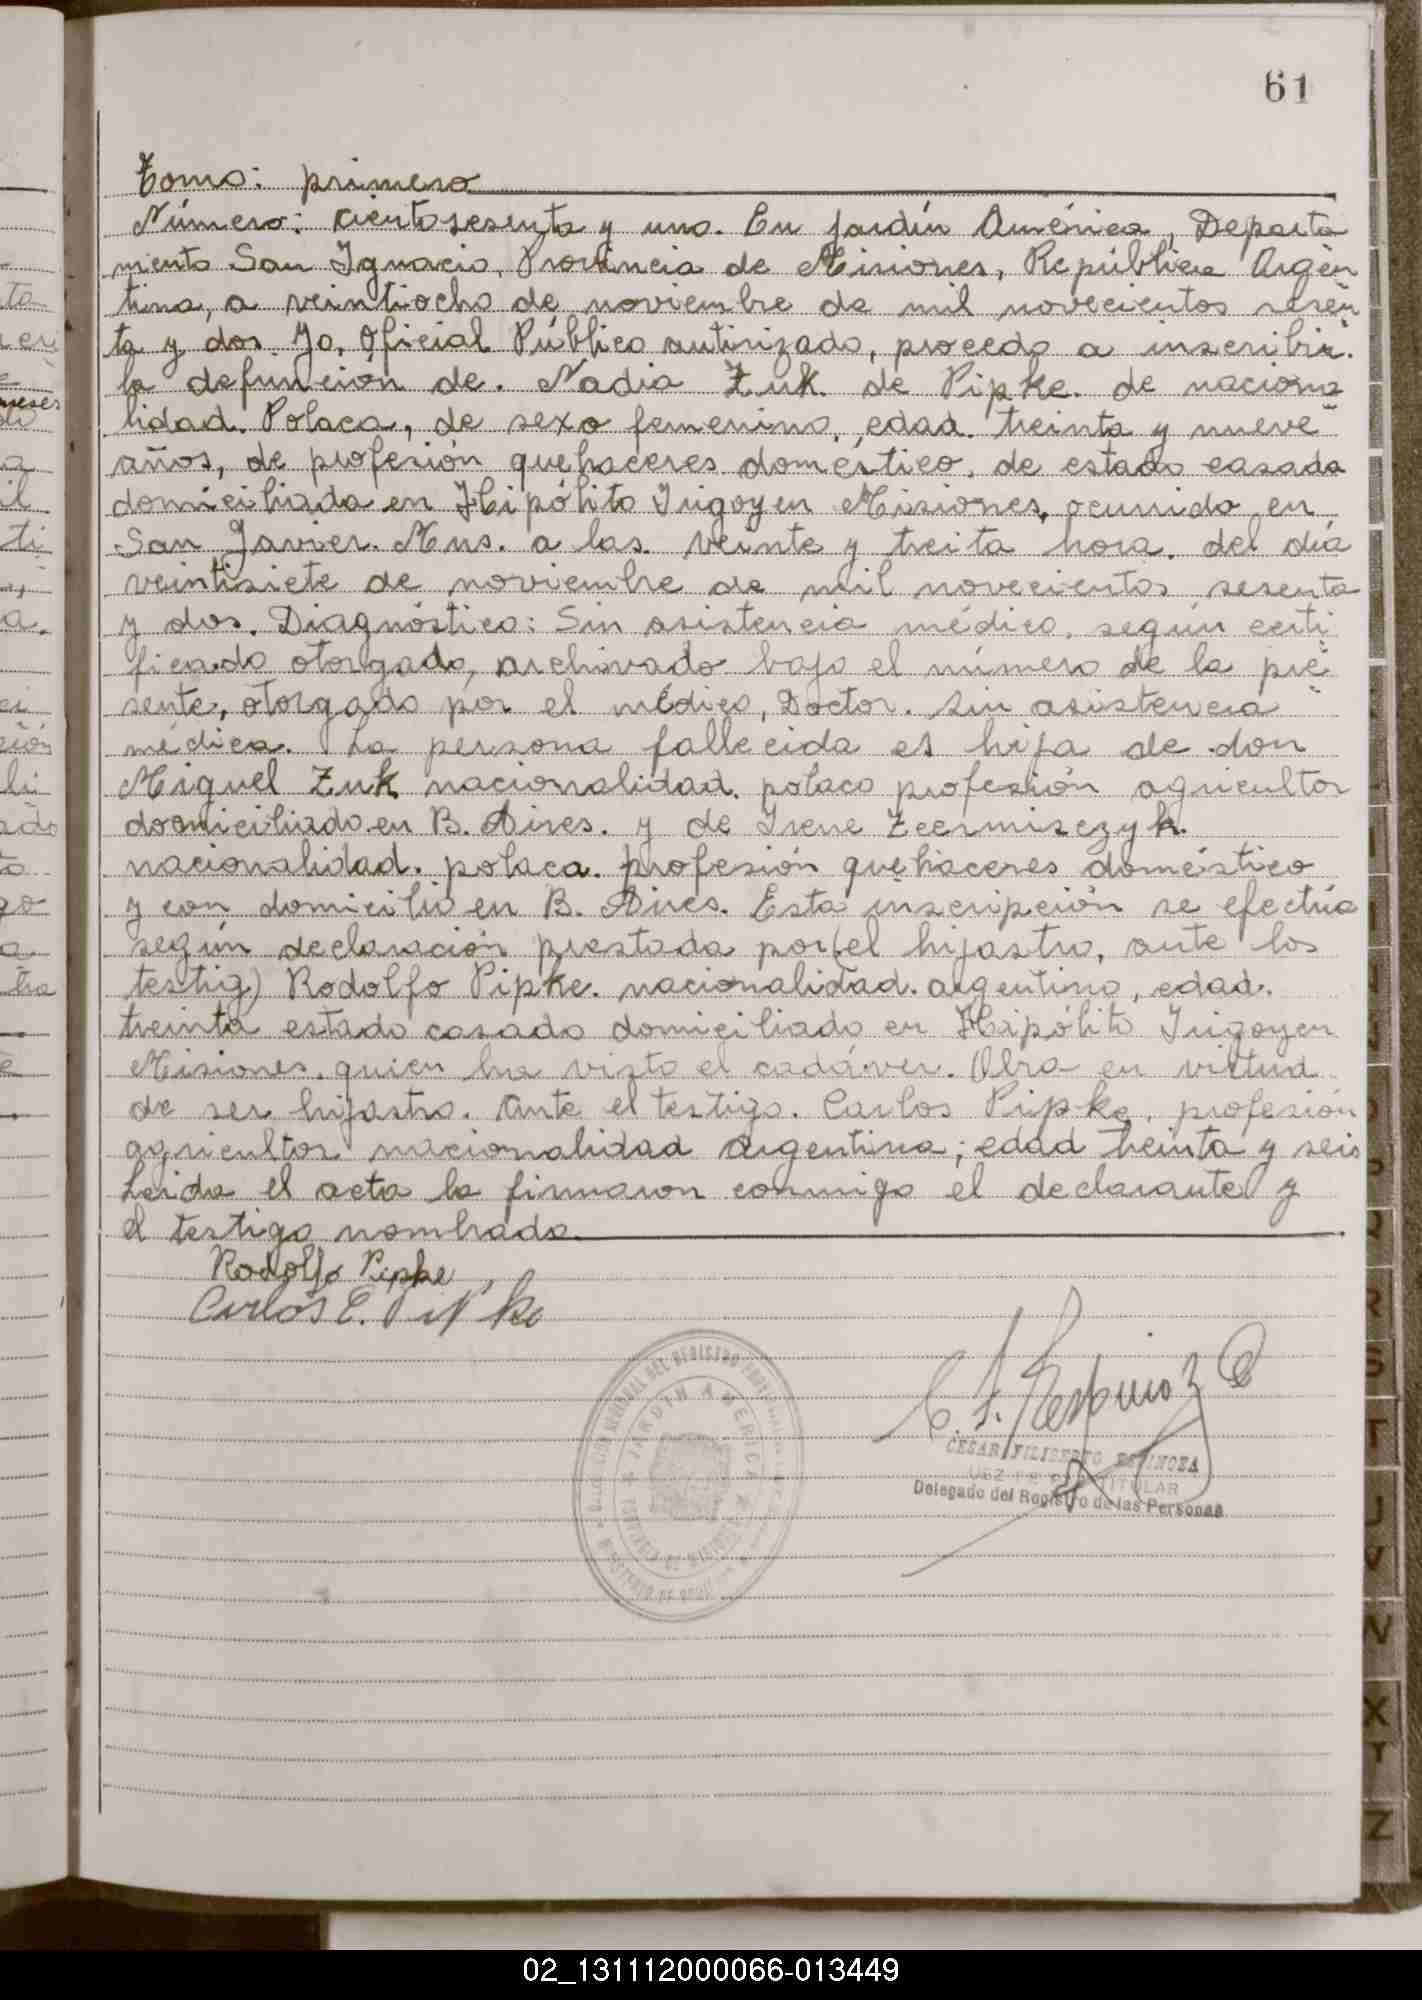 61
Tomo: primero
Número: ciento sesenta y uno. En Jardín América, Departa
mento San Ignacio, Provincia de Misiones, República Argen
tina, a veintiocho de noviembre de mil novecientos sesen
ta y dos. Yo, Oficial Público autirizado, procedo a inscribir.
la defunción de. Nadia Zuk de Pipke. de naciona
lidad. Polaca, de sexo femenino, edad. treinta y nueve
años, de profesión quehaceres doméstico, de estado casada
domiciliada en Hipólito Irigoyen Misiones, ocurrido en
San Javier. Mns. a las veinte y treita hora. del día
veintisiete de noviembre de mil novecientos sesenta
y dos. Diagnóstico: Sin asistencia médico, según certi
ficado otorgado, archivado bajo el número de la pre
sente, otorgado por el médico, Doctor. sin asistencia
médica. La persona fallecida es hija de don
Miguel Zuk nacionalidad. polaco profesión agricultor
domiciliado en B. Aires. y de Irene Zcermisczyk.
nacionalidad. polaca. profesión quehaceres doméstico
y con domicilio en B. Aires. Esta inscripción se efectúa
según declaración prestada por (el hijastro, ante los
testig) Rodolfo Pipke. nacionalidad. argentino, edad.
treinta estado casado domiciliado en Hipólito Irigoyen
Misiones. quien ha visto el cadáver. Obra en virtud
de ser hijastro. Ante el testigo. Carlos Pipke, profesión
agricultor nacionalidad argentina; edad treinta y seis
Leida el acta la firmaron conmigo el declarante y
el testigo nombrado.
Rodolfo Pipke
Carlos E. Pipke
JARDIN AMERICA
CESAR FILIBERTO ESPINOZA
TITULAR
Delegado del Registro de las Personas
R
S
T
U
V
X
Y
Z
02_131112000066-013449